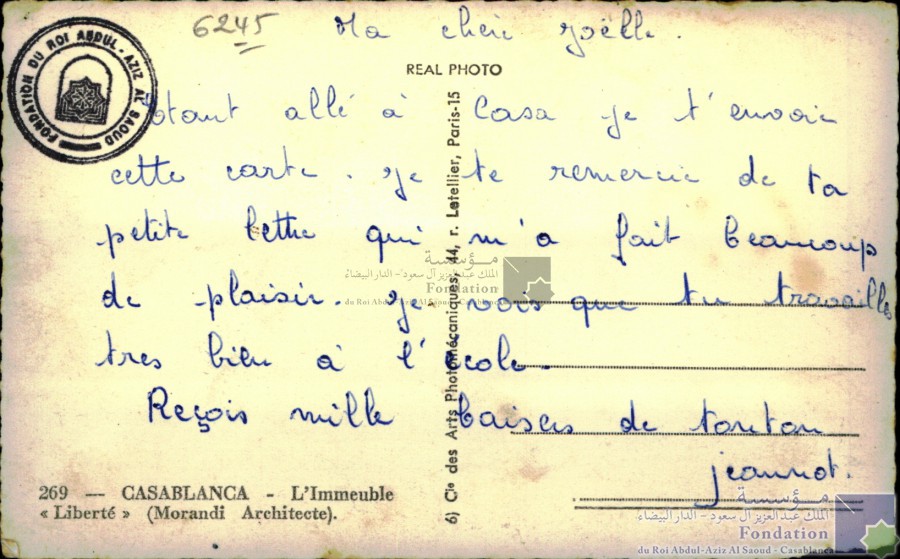 6245
Ma chère Joëlle.
REAL PHOTO
FONDATION DU ROI ABDUL-AZIZ AL SAOUD
Etant allé à Casa je t'envoie
cette carte. Je te remercie de ta
petite lettre qui m'a fait beaucoup
de plaisir. Je vois que tu travailles
tres bien à l'école.
Reçois mille baisers de tonton
jeannot.
6) Cie des Arts Photomécaniques, 44, r. Letellier, Paris-15
269 — CASABLANCA - L'Immeuble
« Liberté » (Morandi Architecte).
مؤسسة
الملك عبد العزيز آل سعود - الدار البيضاء
Fondation
du Roi Abdul-Aziz Al Saoud - Casablanca
مؤسسة
الملك عبد العزيز آل سعود - الدار البيضاء
Fondation
du Roi Abdul-Aziz Al Saoud - Casablanca